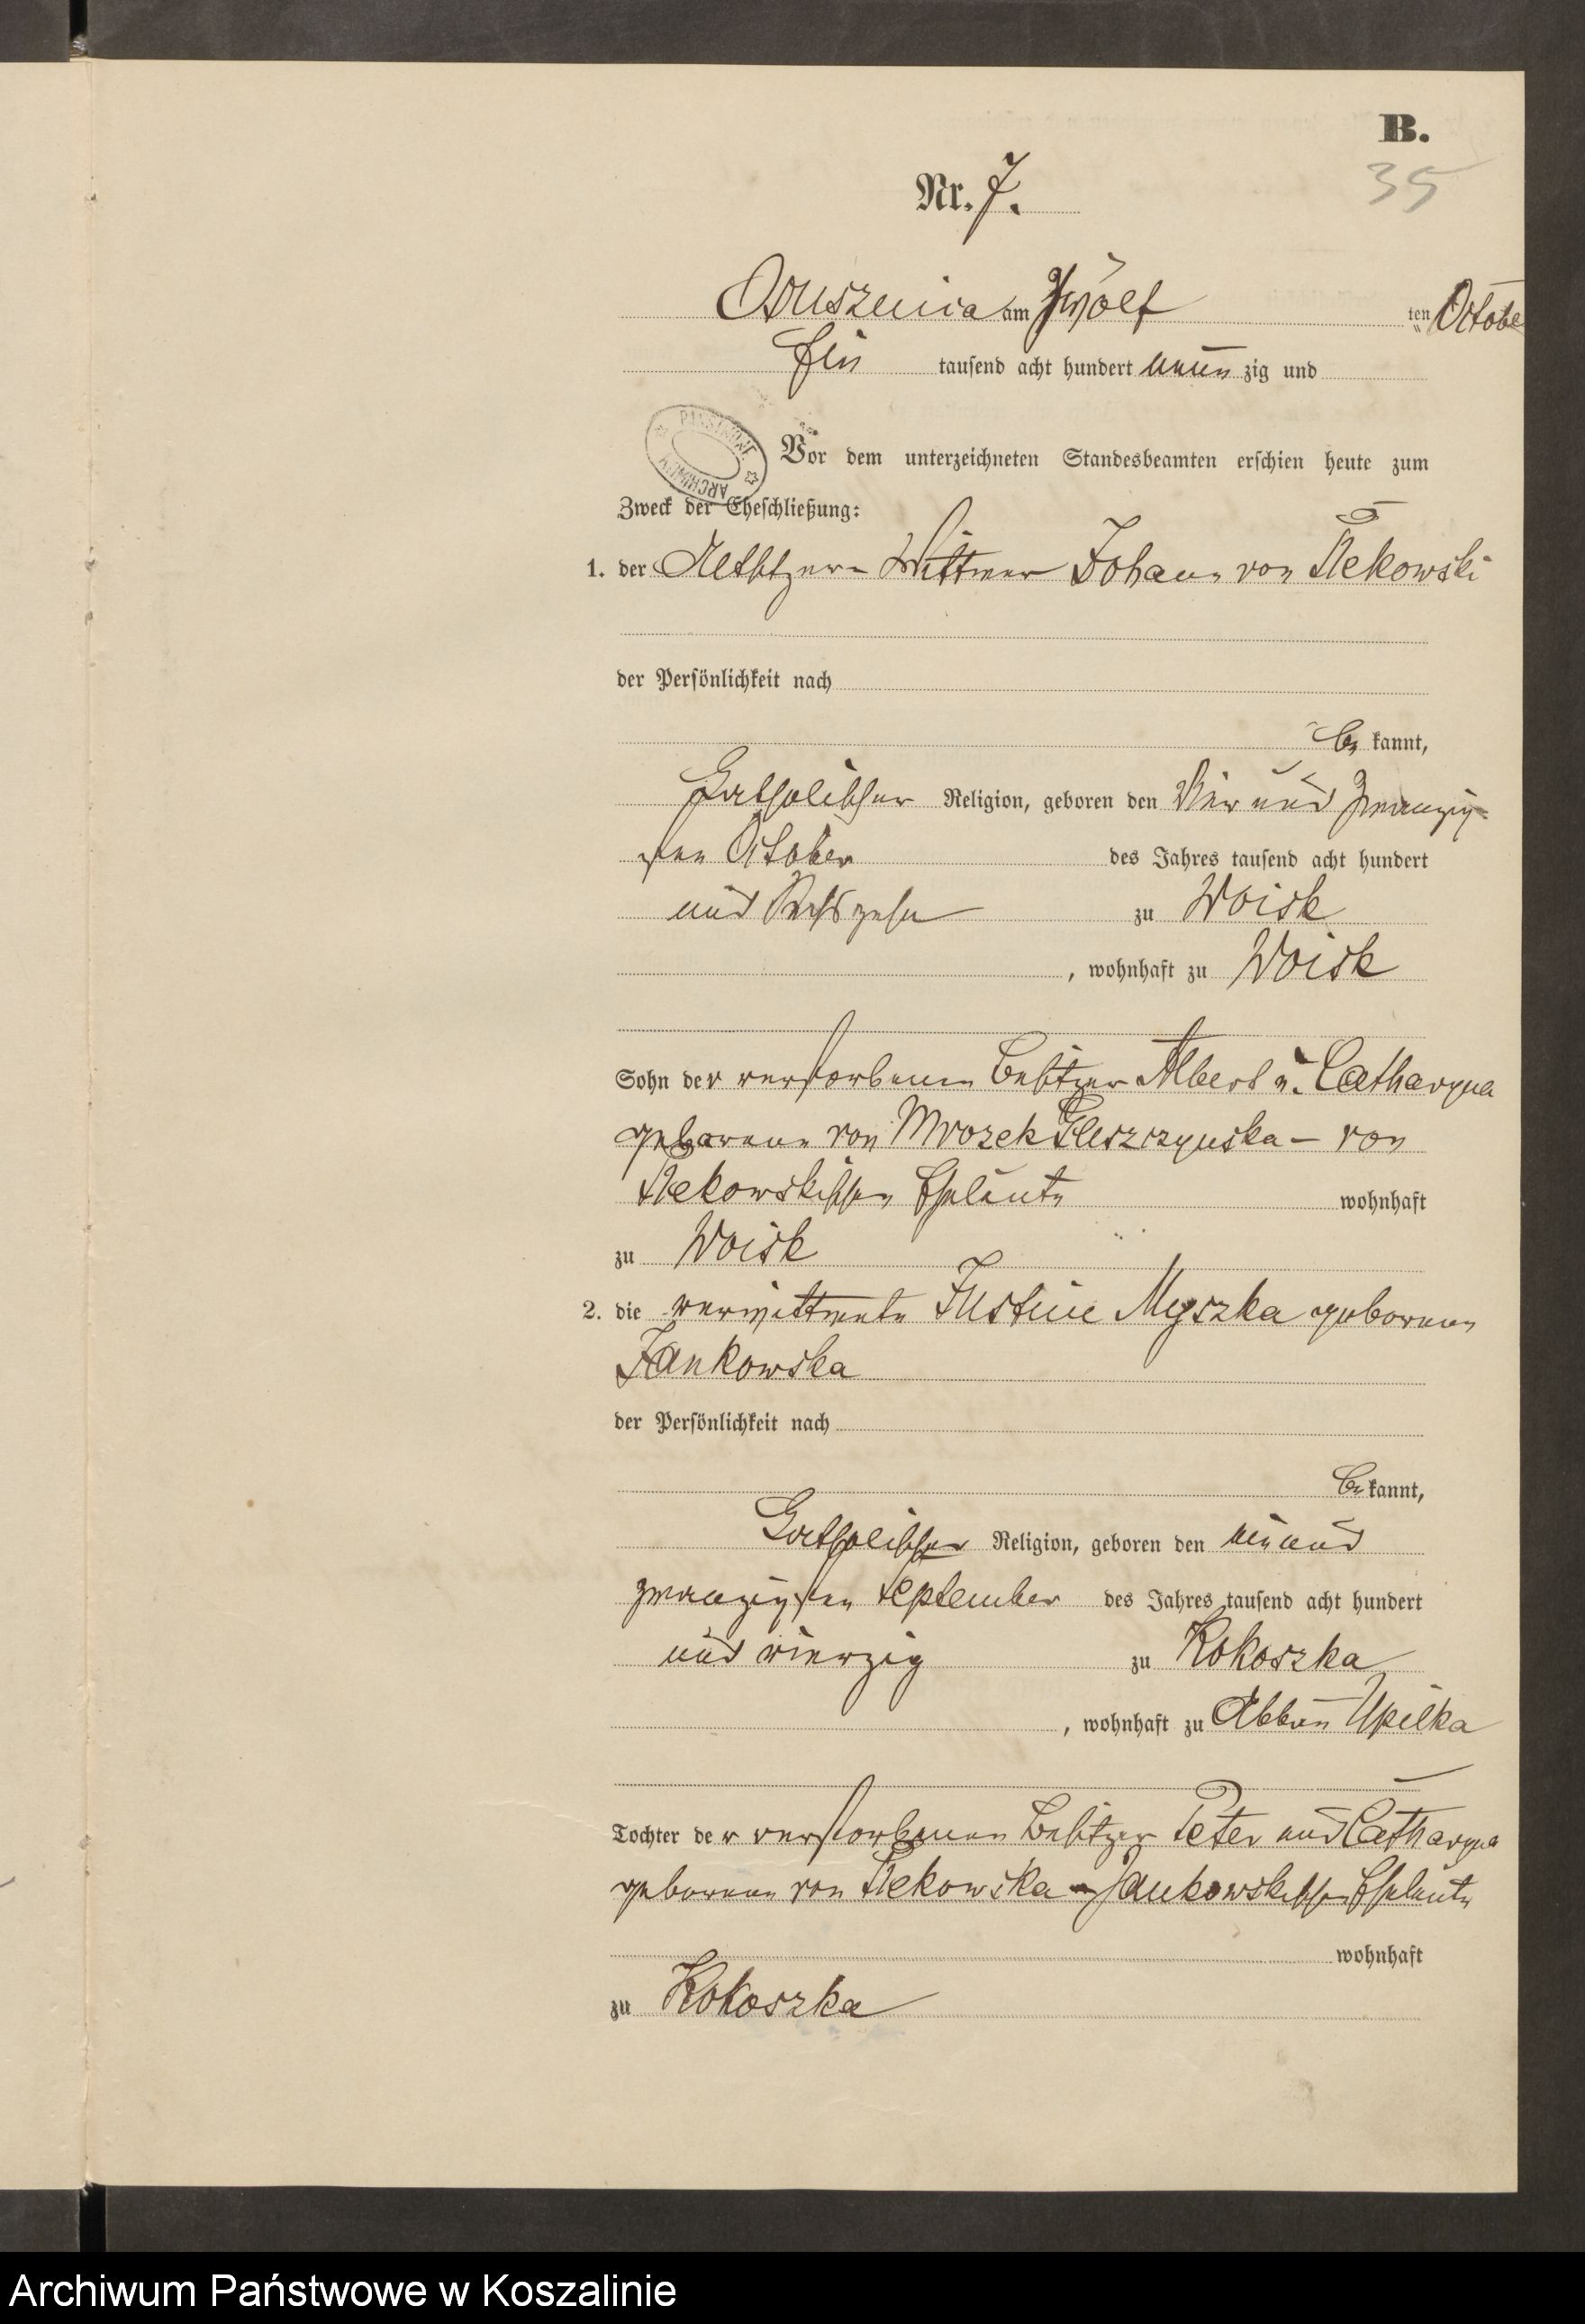 B.
35
Nr. 7.
Osuszenica am Zwölf ten October
Ein tausend acht hundert neun zig und
PAŃSTWOWE ARCHIWUM
Vor dem unterzeichneten Standesbeamten erschien heute zum
Zweck der Eheschließung:
1. der Altsitzer Wittwer Johann von Rekowski
der Persönlichkeit nach
be kannt,
Katholischer Religion, geboren den Vier und zwanzig-
sten October des Jahres tausend acht hundert
und sechszehn zu Woisk
, wohnhaft zu Woisk
Sohn der verstorbenen Besitzer Albert u. Catharyna
geborene von Mrozek Gleszczynska - von
Rekowskischen Eheleute wohnhaft
zu Woisk
2. die verwittwete Justine Myszka geborene
Jankowska
der Persönlichkeit nach
be kannt,
Katholischer Religion, geboren den ein und
zwanzigsten September des Jahres tausend acht hundert
und vierzig zu Kokoszka
, wohnhaft zu Abbau Upilka
Tochter der verstorbenen Besitzer Peter und Catharyna
geborene von Rekowska - Jankowskischen Eheleute
wohnhaft
zu Kokoszka
Archiwum Państwowe w Koszalinie